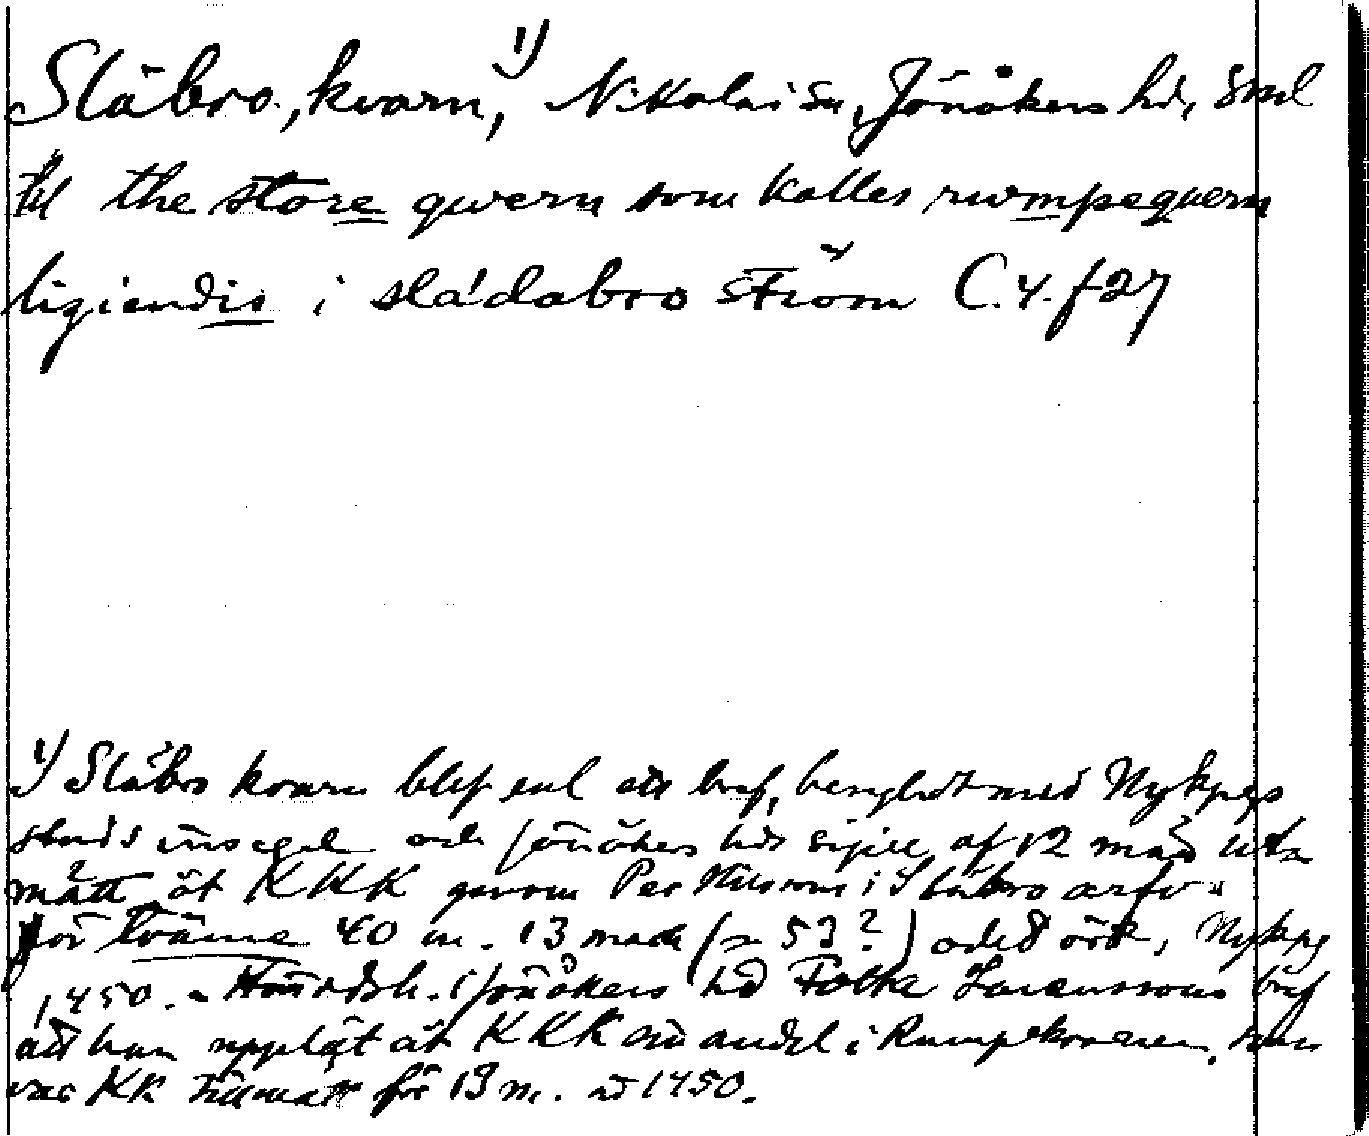 Släbro, kvarn, 1) Nikolai sn, Jönåkers hd, Sml
till the store qwern som kalles rwmpequern
ligiendis i sládabro ström C.4. f 27
1) Släbro kvarn blef enl ett bref, beseglat med Nykpgs
stads insegel och Jönåkers hds sigill, af 12 män
mätt åt KKK genom Per Nilssons i Släbro arfv.
för tvänne 40 m. 13 mark (= 53?) och 8 örtr, Nykpg
1450. - Häradsh. i Jönåkers hd Folke Larenssons bref
att han uppl​åt åt KKK en andel i Rumpekvarnen, som
var KK tillmätt för 13 m. ad 1450.